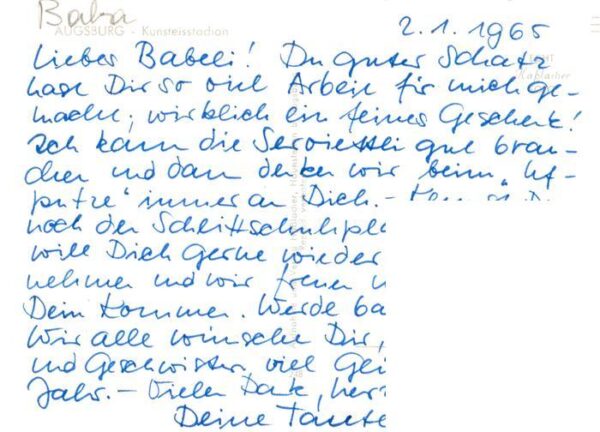 Baba
AUGSBURG - Kunsteisstadion
2.1.1965
Lieber Babeli! Du guter Schatz
hast Dir so viel Arbeit für mich ge-
macht; wirklich ein feines Geschenk!
Ich kann die Serviettli gut brau-
chen und dann denken wir beim "Uf-
putze" immer an Dich. -
noch den Schlittschuhpla
will Dich gerne wieder
nehmen und wir freuen
Dein Kommen. Werde ba
Wir alle wünsche Dir,
und Geschwister, viel
Jahr. - Vielen Dank, herz
Deine Tante